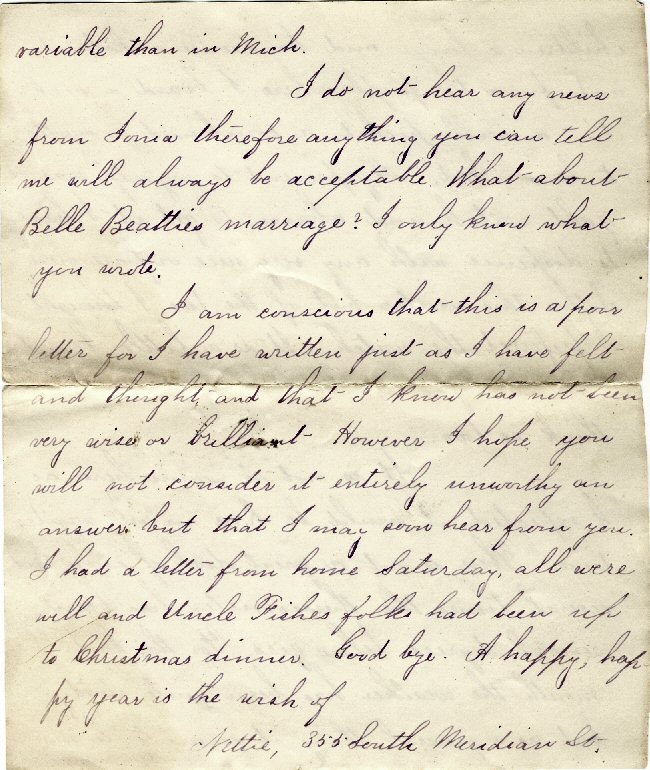 variable than in Mich.
I do not hear any news
from Ionia therefore anything you can tell
me will always be acceptable. What about
Belle Beatties marriage? I only know what
you wrote.
I am conscious that this is a poor
letter for I have written just as I have felt
and thought, and that I know has not been
very wise or brilliant However I hope you
will not consider it entirely unworthy an
answer. but that I may soon hear from you.
I had a letter from home Saturday, all were
well and Uncle Fishes folks had been up
to Christmas dinner. Good bye. A happy, hap-
py year is the wish of
Nettie, 355 South Meridian St.